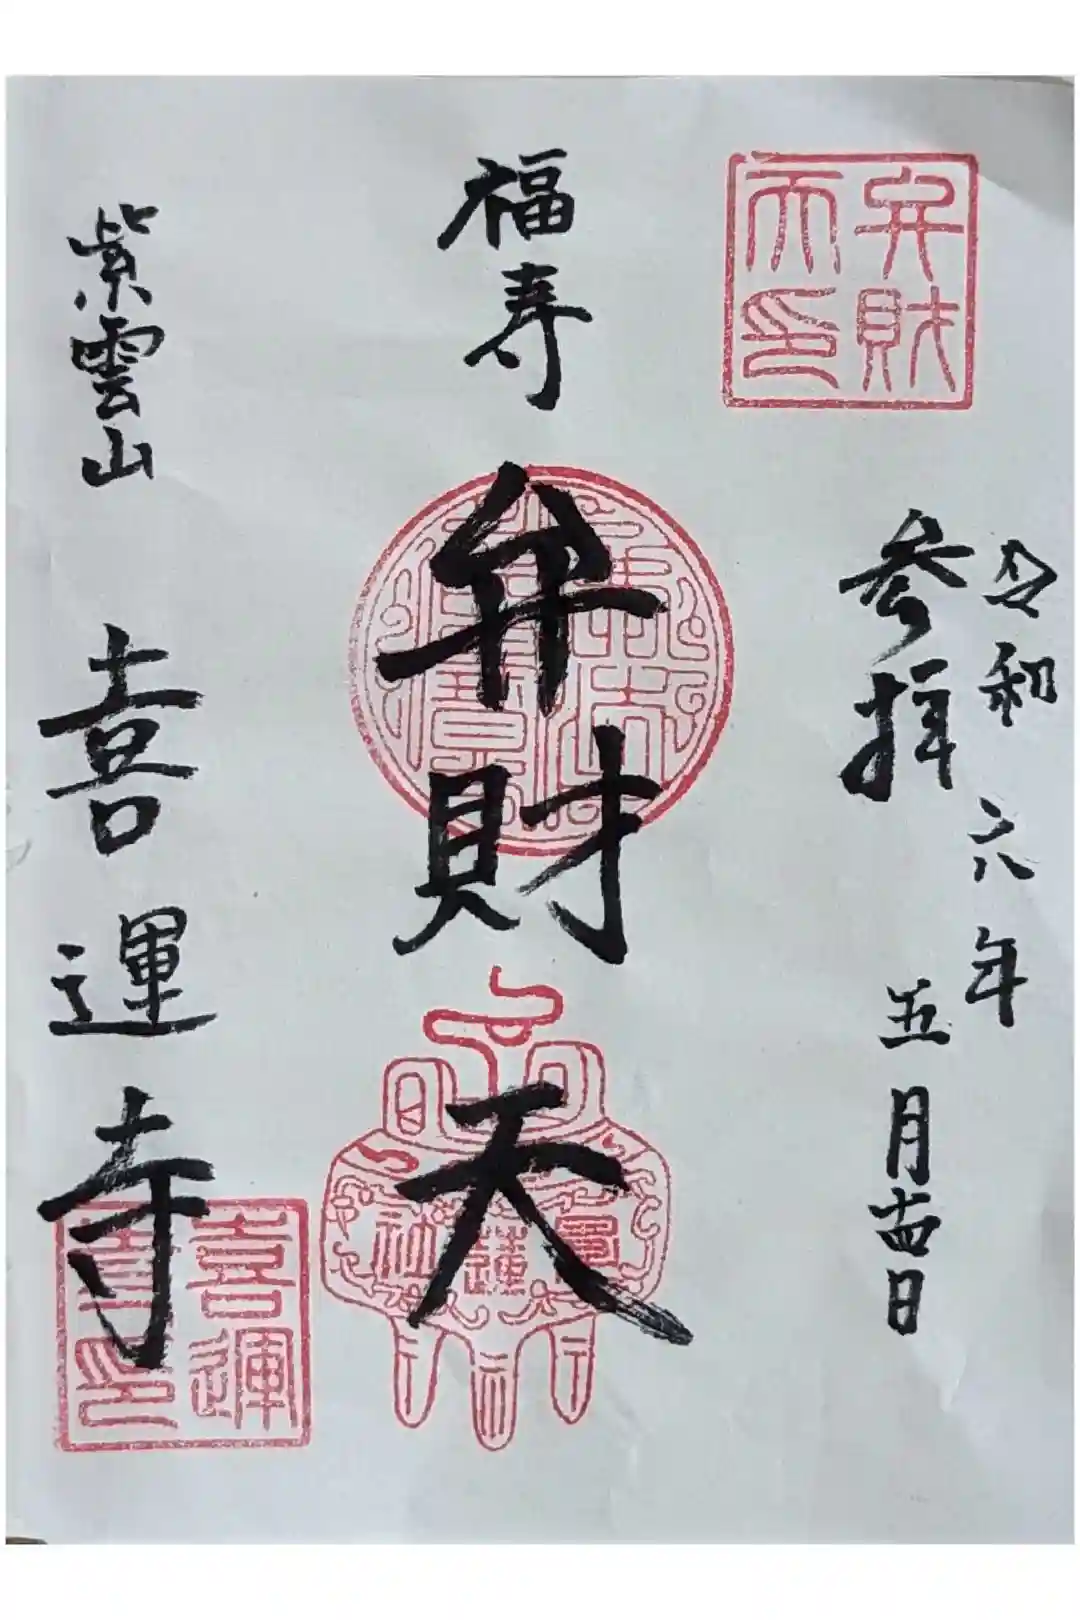 弁財
天印
令和六年
五月廿四日
参拝
福寿
弁財天
紫雲山
喜運寺
喜運
寺印